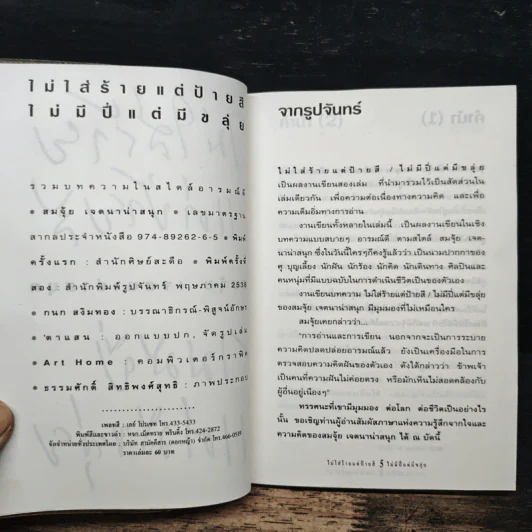 ไม่ใส่ร้ายแต่ป้ายสี
ไม่มีปี่แต่มีขลุ่ย
รวมบทความในสไตล์อารมณ์ดี
• สมจุ้ย เจตนาน่าสนุก • เลขมาตรฐาน
สากลประจำหนังสือ 974-89262-6-5 • พิมพ์
ครั้งแรก : สำนักศิษย์สะดือ • พิมพ์ครั้งที่
สอง : สำนักพิมพ์รูปจันทร์ พฤษภาคม 2538
• กนก สงิมทอง : บรรณาธิการณ์-พิสูจน์อักษร
• ตาแสน : ออกแบบปก, จัดรูปเล่ม
• Art Home : คอมพิวเตอร์กราฟิค
• ธรรมศักดิ์ สิทธิพงศ์สุทธิ : ภาพประกอบ
เพลทสี : เลย์ โปรเซท โทร.433-5433
พิมพ์สีและขาวดำ : หจก.เม็ดทราย พริ้นติ้ง โทร.424-2872
จัดจำหน่ายทั่วประเทศโดย : บริษัท สามัคคีสาร (ดอกหญ้า) จำกัด โทร.466-0539
ราคาเล่มละ 60 บาท
จากรูปจันทร์
ไม่ใส่ร้ายแต่ป้ายสี / ไม่มีปี่แต่มีขลุ่ย
เป็นผลงานเขียนสองเล่ม ที่นำมารวมไว้เป็นสัดส่วนใน
เล่มเดียวกัน เพื่อความต่อเนื่องทางความคิด และเพื่อ
ความเต็มอิ่มทางการอ่าน
งานเขียนทั้งหลายในเล่มนี้ เป็นผลงานเขียนในเชิง
บทความแบบสบายๆ อารมณ์ดี ตามสไตล์ สมจุ้ย เจต-
นาน่าสนุก ซึ่งในวันนี้ใครๆก็คงรู้แล้วว่า เป็นนามปากกาของ
ศุ บุญเลี้ยง นักฝัน นักร้อง นักคิด นักเดินทาง ศิลปินและ
คนหนุ่มที่มีแบบฉบับในการดำเนินชีวิตเป็นของตัวเอง
งานเขียนบทความ ไม่ใส่ร้ายแต่ป้ายสี / ไม่มีปี่แต่มีขลุ่ย
ของสมจุ้ย เจตนาน่าสนุก มีมุมมองที่ไม่เหมือนใคร
สมจุ้ยเคยกล่าวว่า...
"การอ่านและการเขียน นอกจากจะเป็นการระบาย
ความคิดปลดปล่อยอารมณ์แล้ว ยังเป็นเครื่องมือในการ
ตรวจสอบความคิดฝันของตัวเอง ดังได้กล่าวว่า ข้าพเจ้า
เป็นคนที่ความฝันไม่ค่อยตรง หรือมักเห็นไม่สอดคล้องกับ
ผู้อื่นอยู่เนืองๆ"
ทรรศนะที่เขามีมุมมอง ต่อโลก ต่อชีวิตเป็นอย่างไร
นั้น ขอเชิญท่านผู้อ่านสัมผัสภาษาแห่งความรู้สึกจากใจและ
ความคิดของสมจุ้ย เจตนาน่าสนุก ได้ ณ บัดนี้
ไม่ใส่ร้ายแต่ป้ายสี 5 ไม่มีปี่แต่มีขลุ่ย